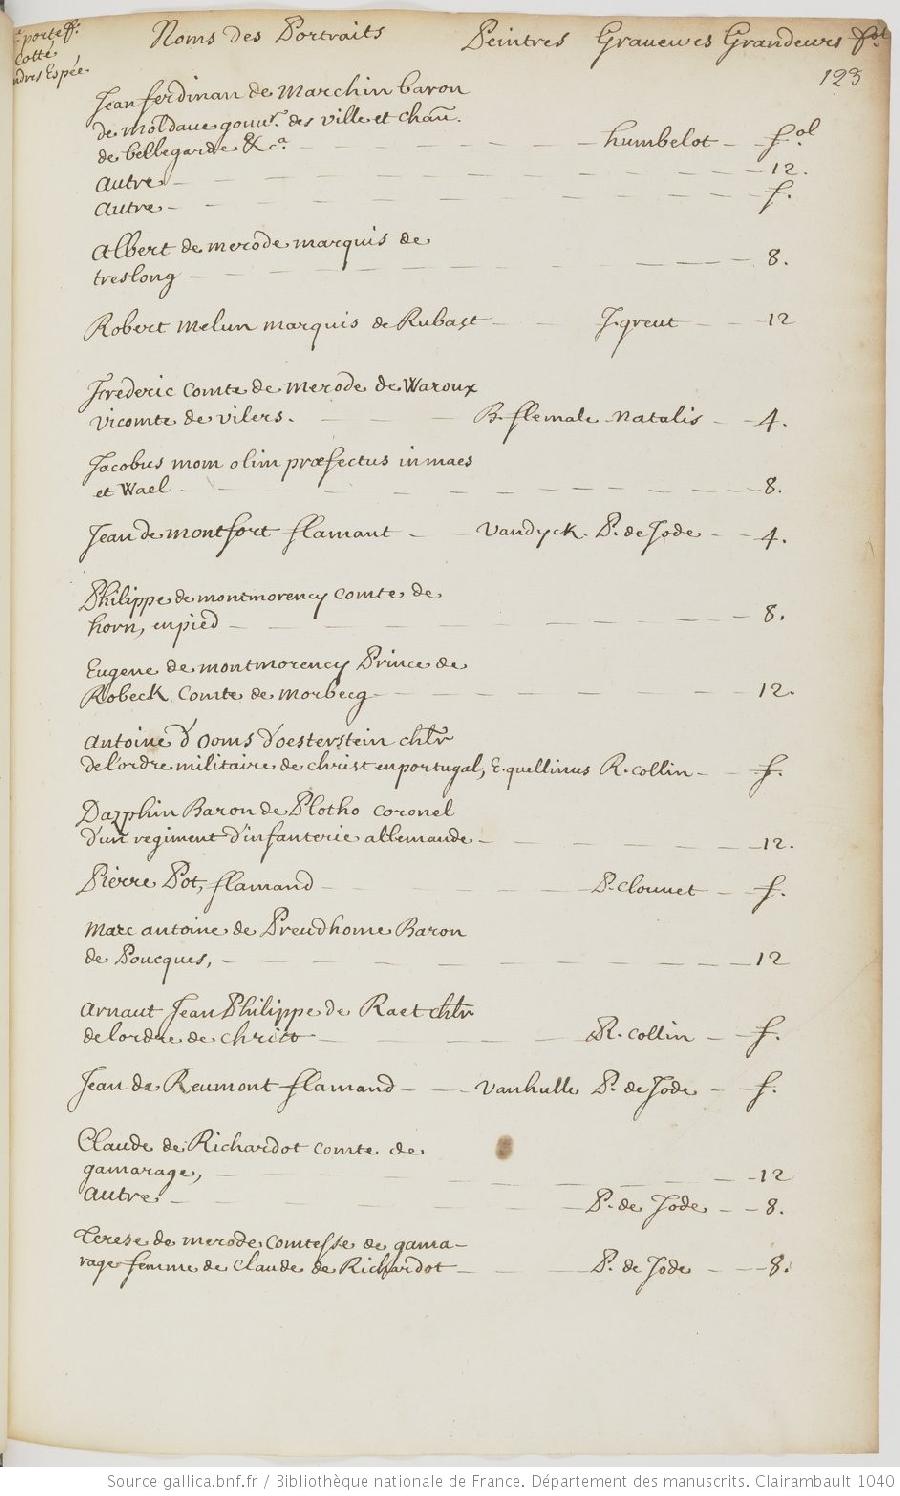 portef.
Cotté
ndres Espée.
Noms des Portraits Peintres Graueurs Grandeurs fol
123
Jean ferdinan de Marchin baron
de moldaue gouur. des ville et chau.
de bellegarde &ca. humbelot fol
autre 12.
autre f.
Albert de merode marquis de
treslong 8.
Robert Melun marquis de Rubast J. greut 12
Frederic Comte de merode de Waroux
vicomte de vilers. B. flemale Natalis 4.
Jacobus mom olim præfectus in maes
et Wael 8.
Jean de montfort flamant Vandyck. P. de Jode 4.
Philippe de montmorency comte de
horn, en pied 8.
Eugene de montmorency Prince de
Robeck Comte de Morbecq 12.
Antoine d'Ooms d'oesterstein chlr
de l'ordre militaire de christ en portugal, E. quellinus R. collin f.
Baron de Plotho coronel
d'un regiment d'infanterie allemande 12.
Pierre Pot, flamand P. Clouuet f.
Marc antoine de Preudhome Baron
de Poucques, 12
Arnaut Jean Philippe de Raet chlr
de lordre de christ R. Collin f.
Jean de Reumont flamand vanhulle P. de Jode f.
Claude de Richardot comte de
gamarage, 12
autre P. de Jode 8.
Terese de merode Comtesse de gama-
rage femme de Claude de Richardot P. de Jode 8.
Source gallica.bnf.fr / Bibliothèque nationale de France. Département des manuscrits. Clairambault 1040